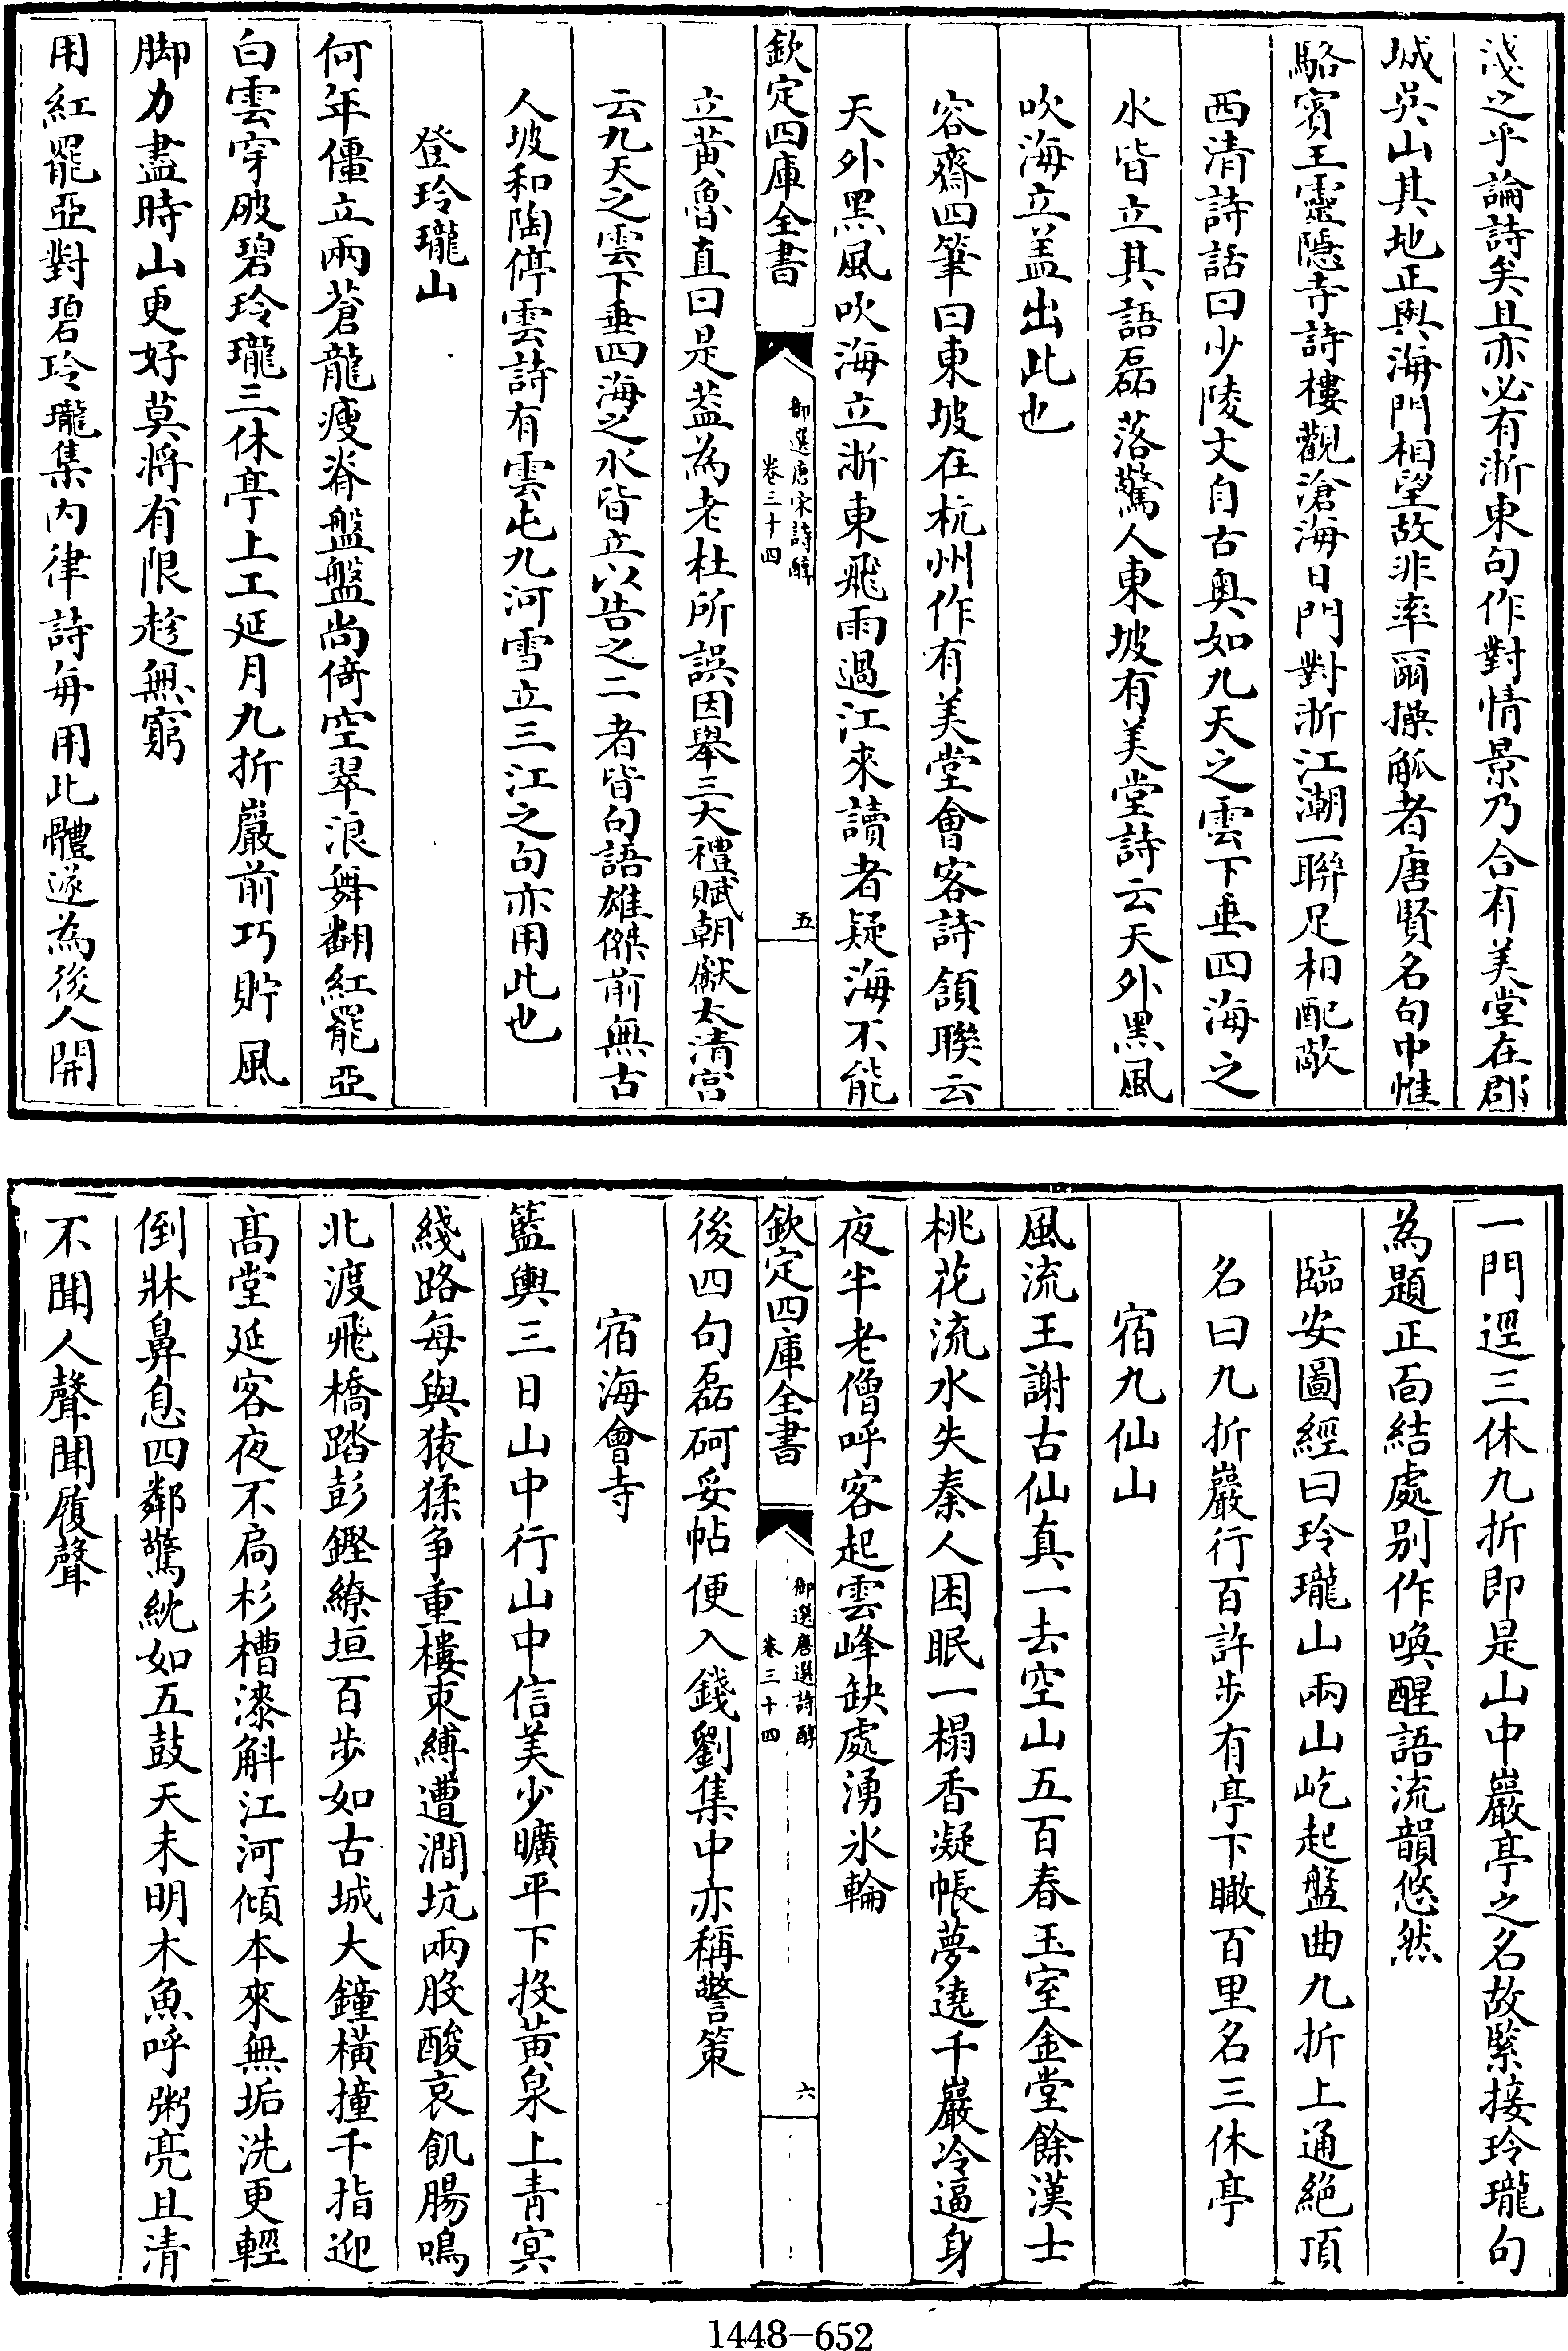 淺之乎論詩矣且亦必有浙東句作對情景乃合有美堂在郡
城吳山其地正與海門相望故非率爾操觚者唐賢名句中惟
駱賓王靈隱寺詩樓觀滄海日門對浙江潮一聯足相配敵
西清詩話曰少陵文自古奥如九天之雲下垂四海之
水皆立其語磊落驚人東坡有美堂詩云天外黑風
吹海立盖出此也
容齋四筆曰東坡在杭州作有美堂會客詩頷聯云
天外黑風吹海立浙東飛雨過江來讀者疑海不能
欽定四庫全書
御選唐宋詩醇
卷三十四
五
立黄魯直曰是葢為老杜所誤因舉三大禮賦朝獻太清宫
云九天之雲下垂四海之水皆立以告之二者皆句語雄傑前無古
人坡和陶停雲詩有雲屯九河雪立三江之句亦用此也
登玲瓏山
何年僵立兩蒼龍瘦脊盤盤尚倚空翠浪舞翻紅罷亞
白雲穿破碧玲瓏三休亭上工延月九折巖前巧貯風
脚力盡時山更好莫將有限趁無窮
用紅罷亞對碧玲瓏集内律詩每用此體遂為後人開
一門逕三休九折即是山中巖亭之名故緊接玲瓏句
為題正面結處别作喚醒語流韻悠然
臨安圖經曰玲瓏山兩山屹起盤曲九折上通絶頂
名曰九折巖行百許步有亭下瞰百里名三休亭
宿九仙山
風流王謝古仙真一去空山五百春玉室金堂餘漢士
桃花流水失秦人困眠一榻香凝帳夢遶千巖冷逼身
夜半老僧呼客起雲峰缺處湧氷輪
欽定四庫全書
御選唐選詩醇
卷三十四
六
後四句磊砢妥帖便入錢劉集中亦稱警策
宿海會寺
籃輿三日山中行山中信美少曠平下投黄泉上青冥
綫路每與猿猱争重樓束縛遭澗坑兩股酸哀飢腸鳴
北渡飛橋踏彭鏗繚垣百步如古城大鐘横撞千指迎
髙堂延客夜不扃杉槽漆斛江河傾本來無垢洗更輕
倒牀鼻息四鄰驚紞如五鼓天未明木魚呼粥亮且清
不聞人聲聞履聲
1448—652